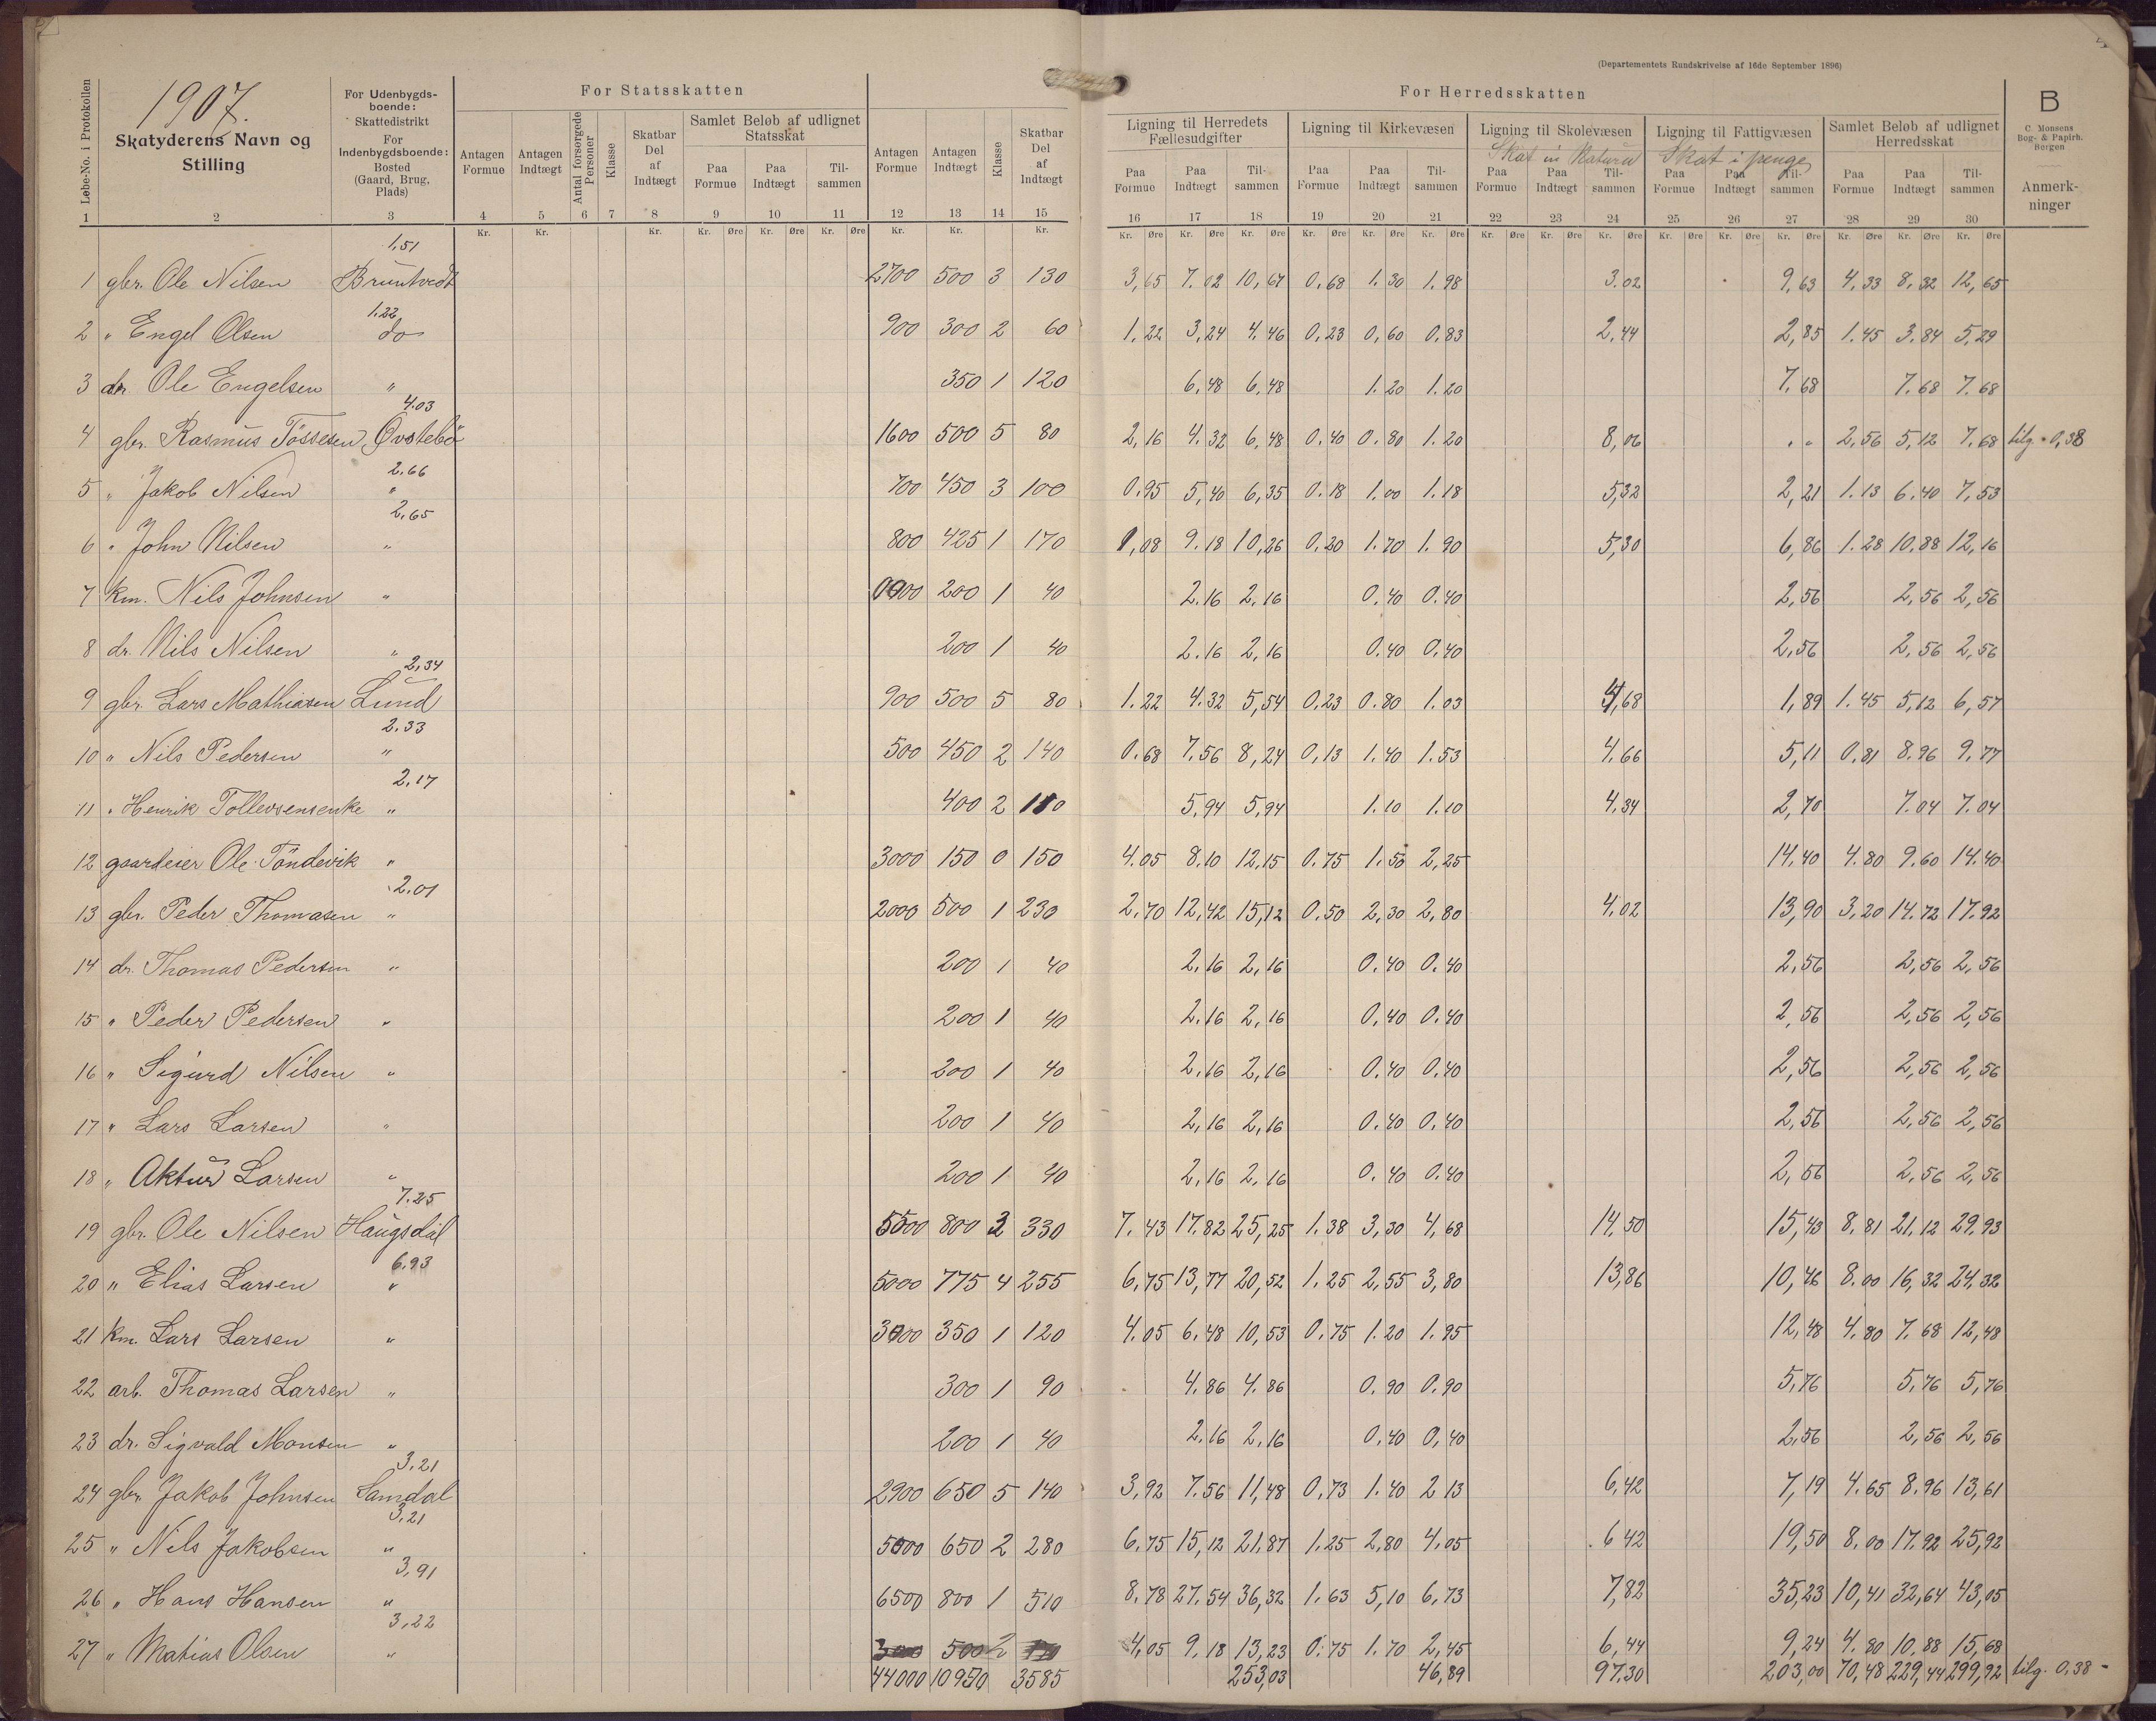 (Departementets Rundskrivelse af 16de September 1896)
1907.
Løbe-No. i Protokollen
Skatyderens Navn og Stilling
For Udenbygds-boende: Skattedistrikt
For Indenbygdsboende: Bosted (Gaard, Brug, Plads)
For Statsskatten
Antagen Formue
Antagen Indtægt
Antal forsørgede Personer
Klasse
Skatbar Del af Indtægt
Samlet Beløb af udlignet Statsskat
Paa Formue
Paa Indtægt
Til-sammen
Antagen Formue
Antagen Indtægt
Klasse
Skatbar Del af Indtægt
For Herredsskatten
Ligning til Herredets Fællesudgifter
Ligning til Kirkevæsen
Ligning til Skolevæsen
Skat in Natura
Ligning til Fattigvæsen
Skat i penge
Samlet Beløb af udlignet Herredsskat
Paa Formue Paa Indtægt Til-sammen Paa Formue Paa Indtægt Til-sammen Paa Formue Paa Indtægt Til-sammen Paa Formue Paa Indtægt Til-sammen Paa Formue Paa Indtægt Til-sammen
B
C. Monsens Bog- & Papirh. Bergen
Anmerk-ninger
1 2 3 4 5 6 7 8 9 10 11 12 13 14 15 16 17 18 19 20 21 22 23 24 25 26 27 28 29 30
Kr. Kr. Kr. Kr. Øre Kr. Øre Kr. Øre Kr. Kr. Kr. Kr. Øre Kr. Øre Kr. Øre Kr. Øre Kr. Øre Kr. Øre Kr. Øre Kr. Øre Kr. Øre Kr. Øre Kr. Øre Kr. Øre Kr. Øre Kr. Øre Kr. Øre
1,51
1 gbr. Ole Nilsen Bruntvedt 2700 500 3 130 3,65 7.02 10,67 0,68 1.30 1.98 3.02 9,63 4.33 8,32 12,65
1.22
2 " Engel Olsen do 900 300 2 60 1,22 3,24 4,46 0,23 0,60 0,83 2,44 2,85 1.45 3.84 5,29
3 dr. Ole Engelsen " 350 1 120 6,48 6,48 1.20 1.20 7,68 7.68 7.68
4.03
4 gbr. Rasmus Tössesen, Øvstebö 1600 500 5 80 2,16 4.32 6,48 0.40 0.80 1.20 8,06 " " 2,56 5,12 7,68 tilg. 0,38
2.66
5 " Jakob Nilsen " 700 450 3 100 0.95 5,40 6,35 0.18 1.00 1.18 5,32 2,21 1.13 6.40 7,53
2,65
6 " John Nilsen " 800 425 1 170 1,08 9.18 10,26 0,20 1.70 1.90 5,30 6,86 1.28 10,88 12,16
7 km. Nils Johnsen " 200 1 40 2.16 2,16 0.40 0.40 2,56 2,56 2,56
8 dr. Nils Nilsen " 200 1 40 2.16 2,16 0.40 0,40 2,56 2,56 2,56
2,34
9 gbr. Lars Mathiasen Lund 900 500 5 80 1.22 4.32 5,54 0,23 0.80 1.03 4,68 1,89 1.45 5,12 6,57
2.33
10 " Nils Pedersen " 500 450 2 140 0.68 7.56 8,24 0,13 1.40 1.53 4.66 5,11 0.81 8.96 9.77
2,17
11 " Henrik Tollevsensenke " 400 2 110 5,94 5,94 1.10 1.10 4,34 2,70 7.04 7.04
12 gaardeier Ole Töndevik " 3000 150 0 150 4.05 8.10 12,15 0.75 1.50 2,25 14,40 4.80 9.60 14.40
2.01
13 gbr. Peder Thomasen " 2000 500 1 230 2,70 12,42 15,12 0.50 2,30 2,80 4.02 13,90 3,20 14.72 17.92
14 dr. Thomas Pedersen " 200 1 40 2,16 2,16 0.40 0.40 2,56 2,56 2,56
15 " Peder Pedersen " 200 1 40 2.16 2,16 0,40 0.40 2,56 2,56 2,56
16 " Sigurd Nilsen " 200 1 40 2.16 2,16 0,40 0,40 2,56 2,56 2,56
17 " Lars Larsen " 200 1 40 2,16 2,16 0.40 0,40 2,56 2,56 2,56
18 " Aktur Larsen " 200 1 40 2,16 2.16 0.40 0.40 2,56 2,56 2,56
7.25
19 gbr. Ole Nilsen Haugsdal 5500 800 3 330 7.43 17.82 25,25 1.38 3,30 4,68 14,50 15,43 8,81 21,12 29,93
6.93
20 " Elias Larsen " 5000 775 4 255 6,75 13,77 20,52 1.25 2,55 3,80 13,86 10,46 8.00 16,32 24,32
21 km. Lars Larsen " 3000 350 1 120 4.05 6,48 10,53 0,75 1.20 1.95 12,48 4.80 7.68 12,48
22 arb. Thomas Larsen " 300 1 90 4.86 4.86 0.90 0.90 5,76 5,76 5,76
23 dr. Sigvald Monsen " 200 1 40 2,16 2,16 0,40 0,40 2,56 2,56 2,56
3.21
24 gbr. Jakob Johnsen Samdal 2900 650 5 140 3,92 7.56 11,48 0,73 1.40 2 13 6,42 7,19 4.65 8.96 13,61
3,21
25 " Nils Jakobsen " 5000 650 2 280 6.75 15,12 21.87 1.25 2,80 4.05 6 42 19,50 8.00 17.92 25,92
3,91
26 " Hans Hansen " 6500 800 1 510 8.78 27.54 36,32 1.63 5,10 6,73 7,82 35,23 10,41 32,64 43,05
3,22
27 " Matias Olsen " 500 2 4,05 9,18 13,23 0.75 1.70 2,45 6,44 9,24 4.80 10,88 15,68
44000 10950 3585 253,03 46,89 97.30 203,00 70,48 229,44 299,92 tilg. 0,38 -